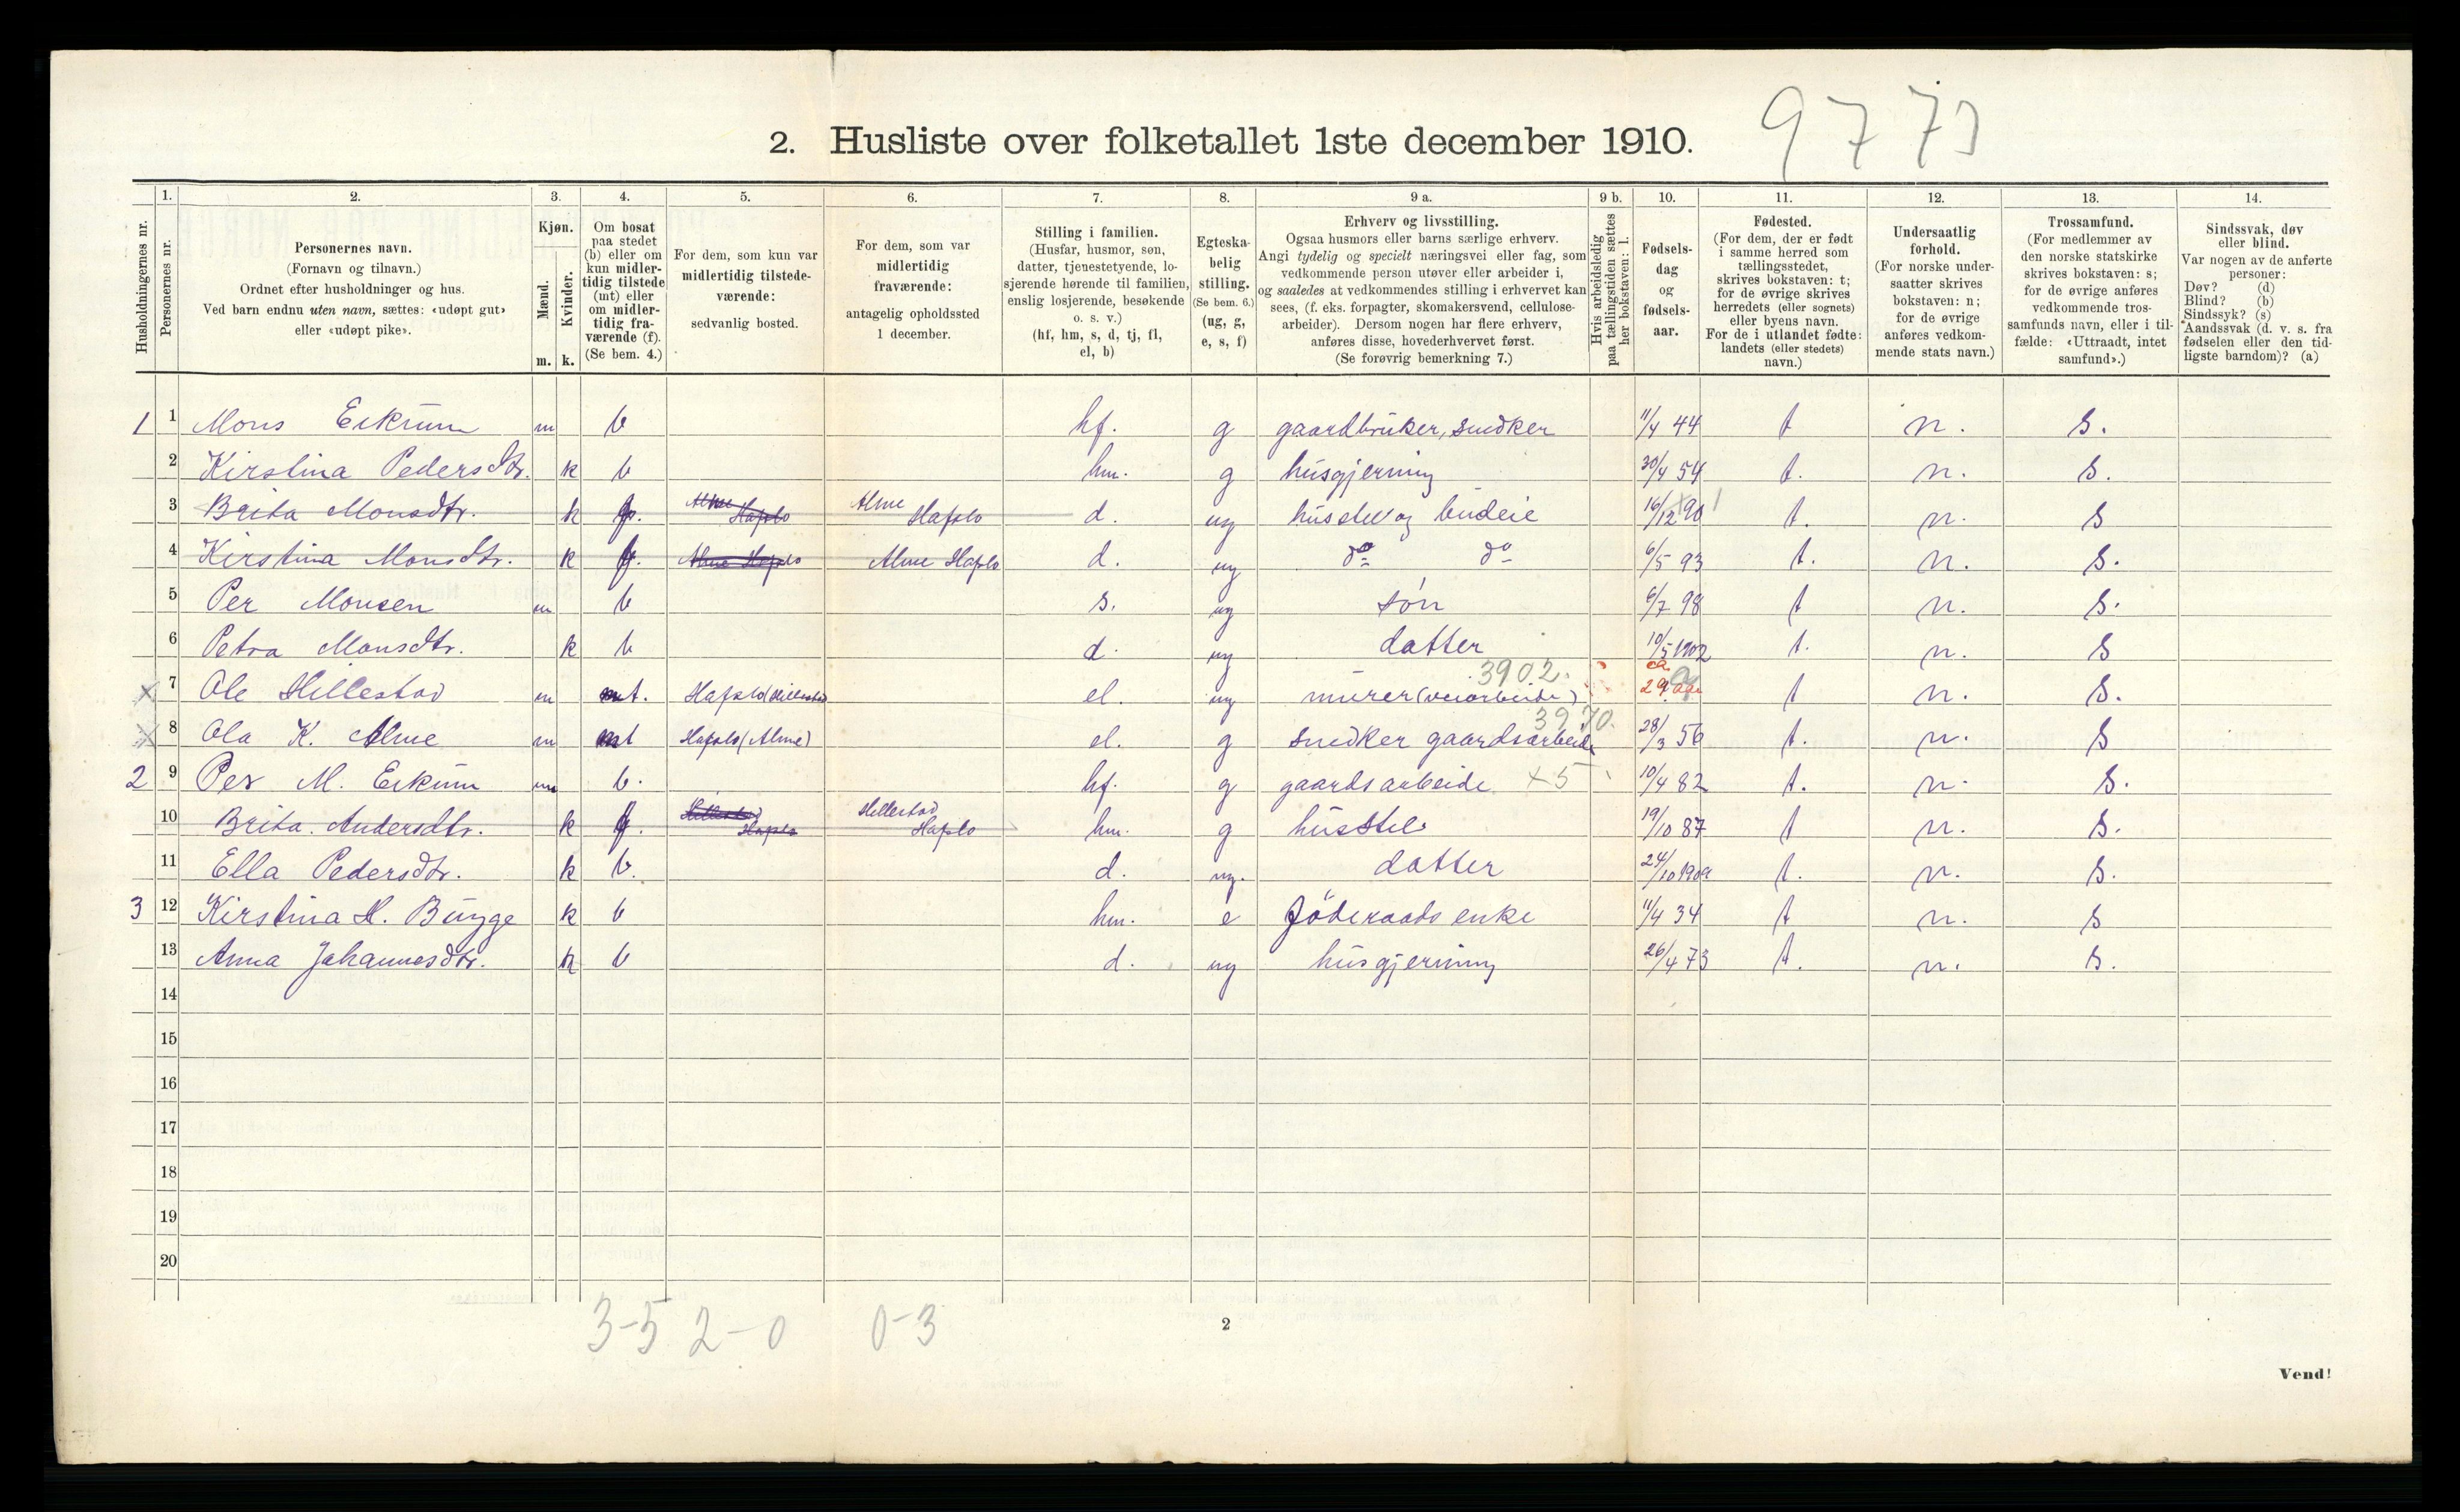 9773
2. Husliste over folketallet 1ste december 1910.
Husholdningernes nr.
1. Personernes nr.
2. Personernes navn.
(Fornavn og tilnavn.)
Ordnet efter husholdninger og hus.
Ved barn endnu uten navn, sættes: «udøpt gut»
eller «udøpt pike».
3. Kjøn.
Mænd. m.
Kvinder. k.
4. Om bosat
paa stedet
(b) eller om
kun midler-
tidig tilstede
(mt) eller
om midler-
tidig fra-
værende (f).
(Se bem. 4.)
5. For dem, som kun var
midlertidig tilstede-
værende:
sedvanlig bosted.
6. For dem, som var
midlertidig
fraværende:
antagelig opholdssted
1 december.
7. Stilling i familien.
(Husfar, husmor, søn,
datter, tjenestetyende, lo-
sjerende hørende til familien,
enslig losjerende, besøkende
o. s. v.)
(hf, hm, s, d, tj, fl,
el, b)
8. Egteska-
belig
stilling.
(Se bem. 6.)
(ug, g,
e, s, f)
9 a. Erhverv og livsstilling.
Ogsaa husmors eller barns særlige erhverv.
Angi tydelig og specielt næringsvei eller fag, som
vedkommende person utøver eller arbeider i,
og saaledes at vedkommendes stilling i erhvervet kan
sees, (f. eks. forpagter, skomakersvend, cellulose-
arbeider). Dersom nogen har flere erhverv,
anføres disse, hovederhvervet først.
(Se forøvrig bemerkning 7.)
9 b. Hvis arbeidsledig
paa tællingstiden sættes
her bokstaven: l.
10. Fødsels-
dag
og
fødsels-
aar.
11. Fødested.
(For dem, der er født
i samme herred som
tællingsstedet,
skrives bokstaven: t;
for de øvrige skrives
herredets (eller sognets)
eller byens navn.
For de i utlandet fødte:
landets (eller stedets)
navn.)
12. Undersaatlig
forhold.
(For norske under-
saatter skrives
bokstaven: n;
for de øvrige
anføres vedkom-
mende stats navn.)
13. Trossamfund.
(For medlemmer av
den norske statskirke
skrives bokstaven: s;
for de øvrige anføres
vedkommende tros-
samfunds navn, eller i til-
fælde: «Uttraadt, intet
samfund».)
14. Sindssvak, døv
eller blind.
Var nogen av de anførte
personer:
Døv? (d)
Blind? (b)
Sindssyk? (s)
Aandssvak (d. v. s. fra
fødselen eller den tid-
ligste barndom)? (a)
1 1 Mons Eikum m b hf. g gaardbruker, snedker 11/4 44 t n. s.
2 Kirstina Pedersdtr. k b hm. g husgjerning 30/4 54 t. n. s.
3 Brita Monsdtr. k f. Alme Hafslo Alme Hafslo d. ug husstel og budeie 16/12 90 t. n. s
4 Kirstina Monsdtr. k f. Alme Hafslo Alme Hafslo d. ug do do 6/5 93 t. n. s.
5 Per Monsen m b s. ug søn 6/7 98 t n. s.
6 Petra Monsdtr. k b d. ug datter 10/5 1902 t. n. s
3902.
x 7 Ole Hillestad m mt. Hafslo (Hillestad el. ug murer (veiarbeide) ca 29 aar t n. s.
3970.
x 8 Ola K. Alme m mt Hafslo (Alme) el. g snedker gaardsarbeide 28/3 56 t. n. s
2 9 Per M. Eikum m b. hf. g gaardsarbeide x5 10/4 82 t. n. s.
10 Brita Andersdtr. k f. Hillestad Hafslo Hillestad Hafslo hm. g husstel 19/10 87 t n. s.
11 Ella Pedersdtr. k b. d. ug. datter 24/10 1909 t. n. s.
3 12 Kirstina H. Bugge k b hm. e föderaads enke 11/4 34 t n. s
13 Anna Johannesdtr. k b d. ug husgjerning 26/4 73 t. n. s.
14
15
16
17
18
19
20
3-5 2-0 0-3
2
Vend!